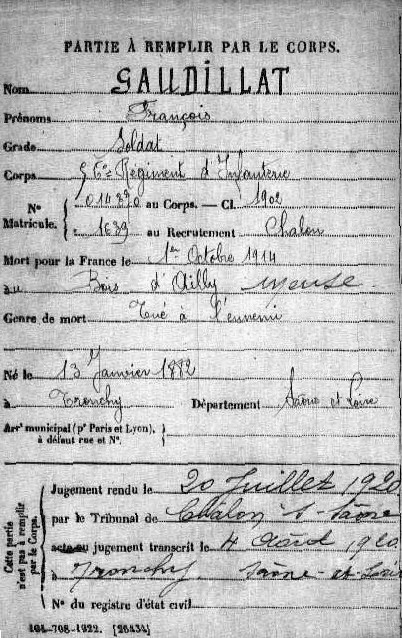 PARTIE À REMPLIR PAR LE CORPS.
Nom GAUDILLAT
Prénoms François
Grade Soldat
Corps 56e Régiment d'Infanterie
N° Matricule. { 014370 au Corps. — Cl. 1902
1639 au Recrutement Chalon
Mort pour la France le 1er Octobre 1914
à au Bois d'Ailly Meuse
Genre de mort Tué à l'ennemi
Né le 13 Janvier 1882
à Tronchy Département Saône et Loire
Arrt municipal (pr Paris et Lyon),
à défaut rue et N°.
Cette partie n'est pas à remplir par le Corps.
Jugement rendu le 20 Juillet 1920
par le Tribunal de Chalon s-Saône
acte ou jugement transcrit le 4 Août 1920
à Tronchy Saône-et-Loire
N° du registre d'état civil
101-708-1922. [26434]